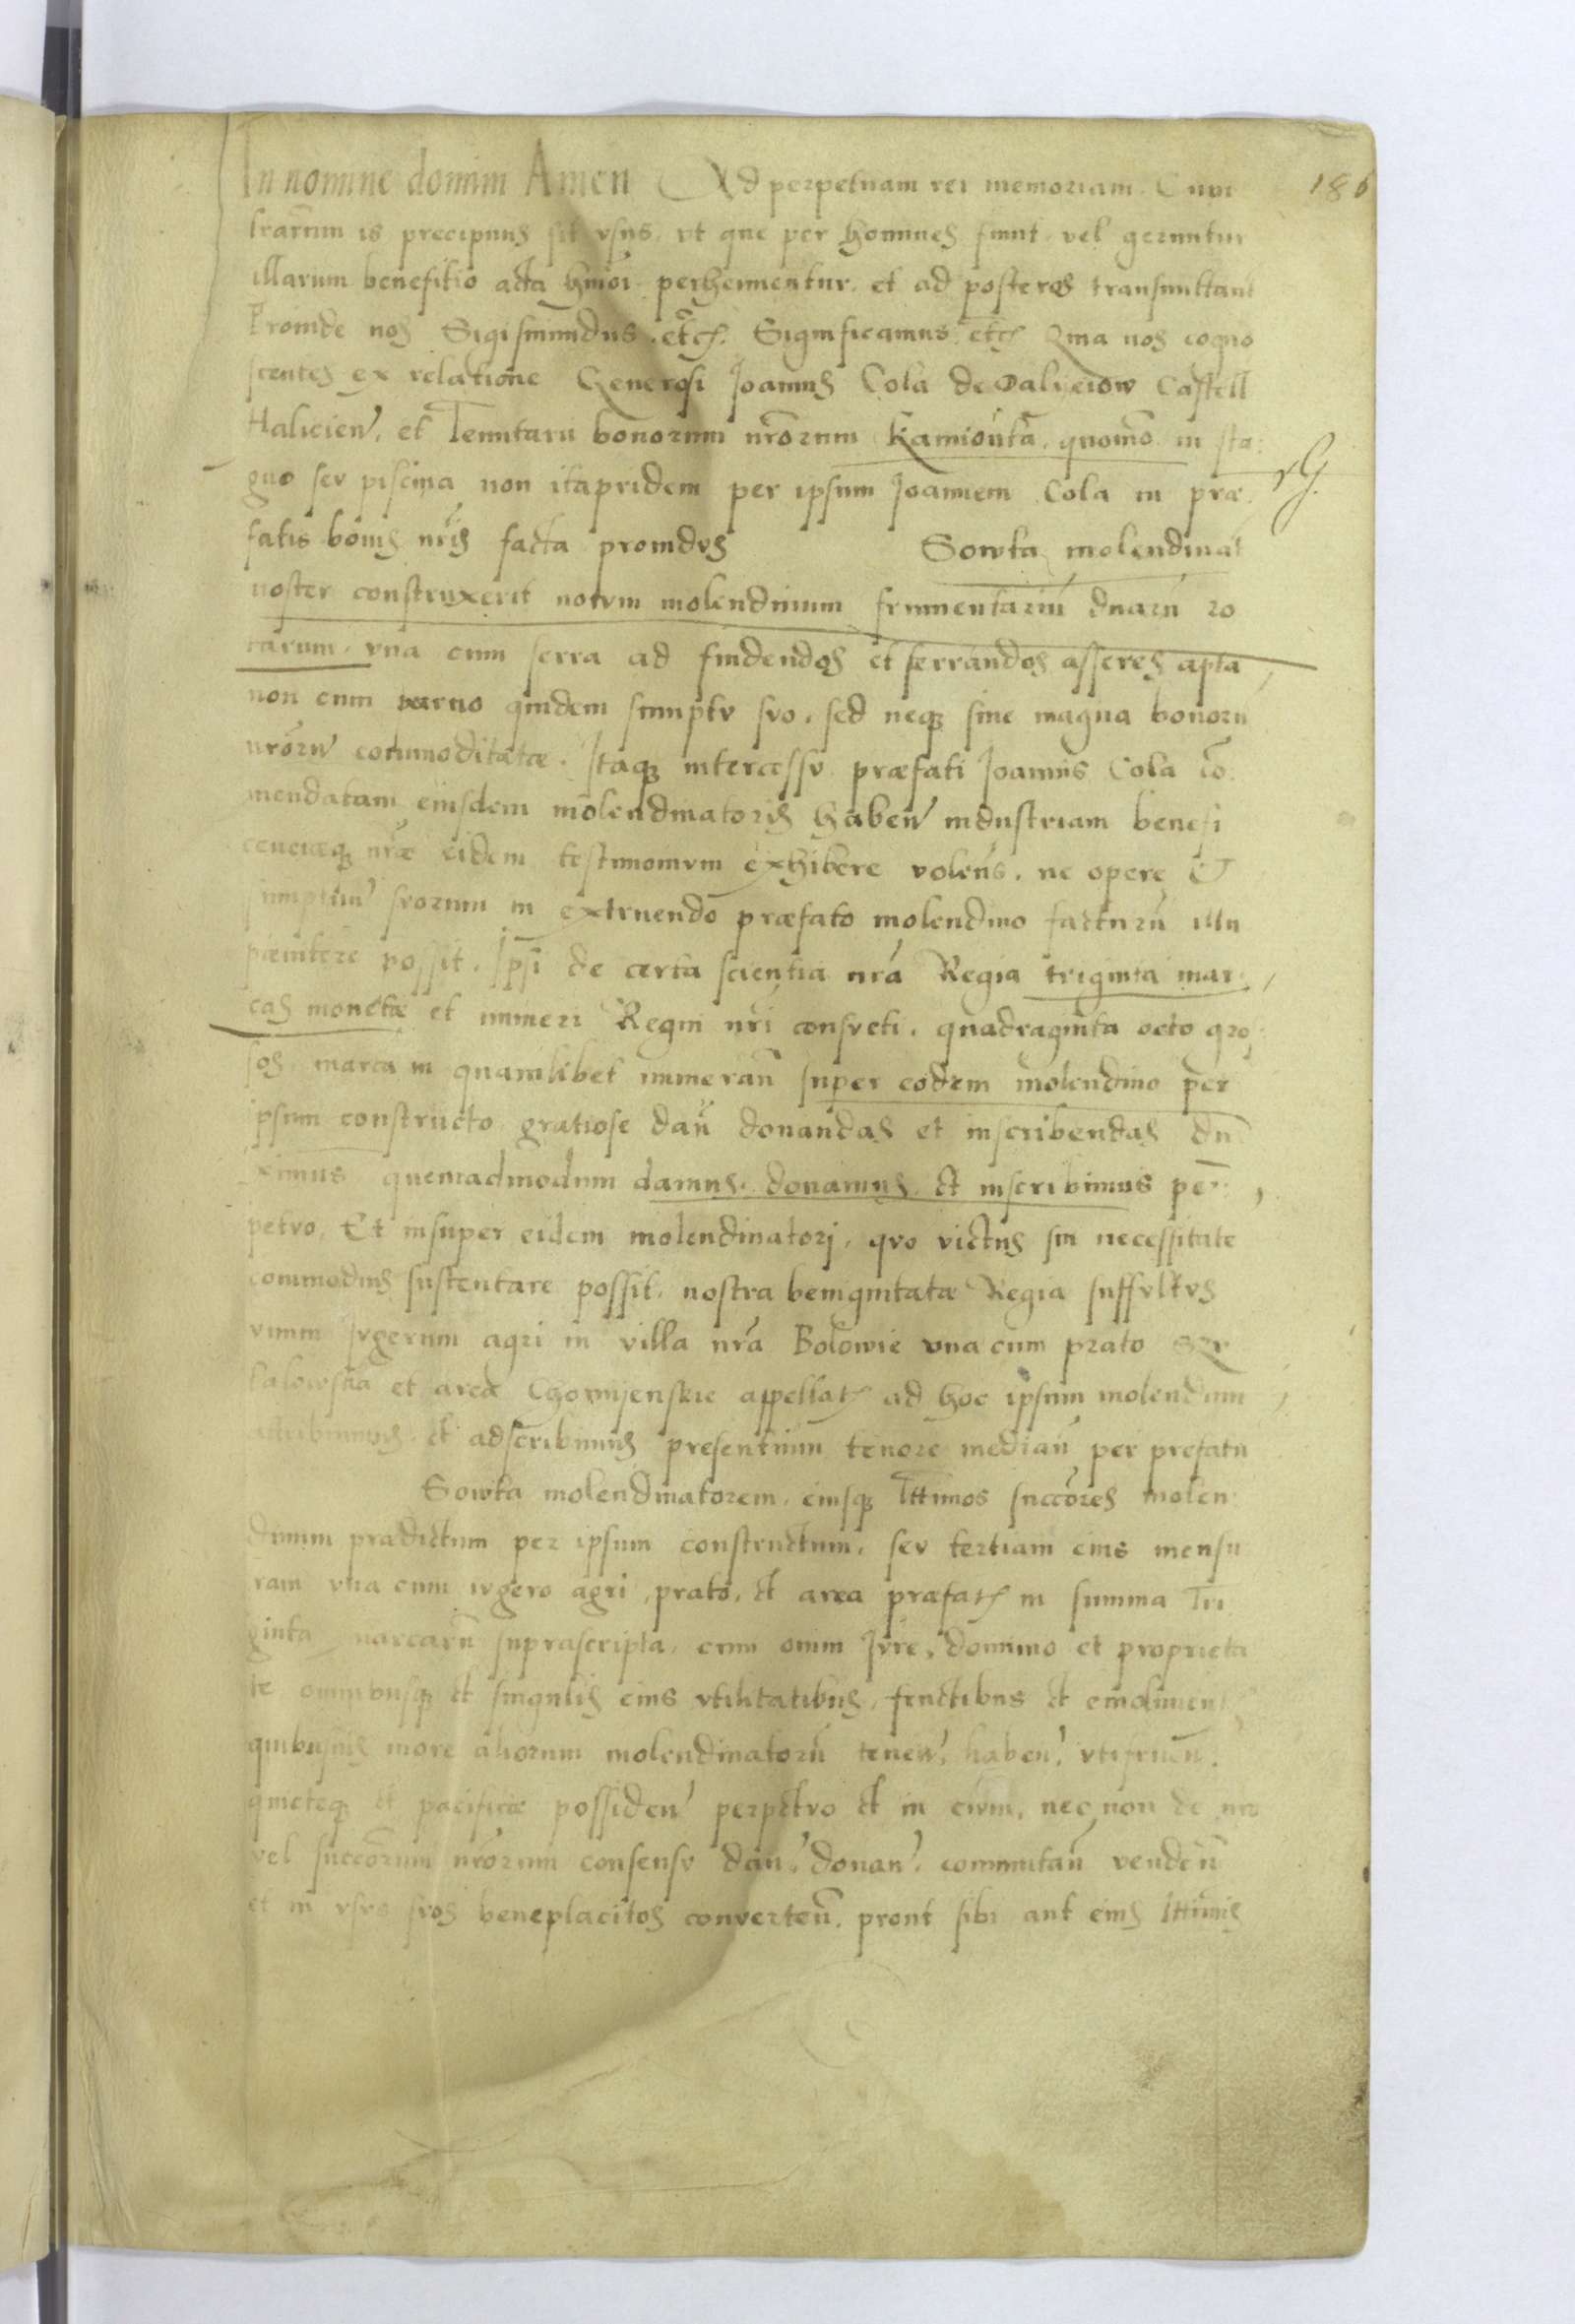 In nomine domini Amen Ad perpetuam rei memoriam. Cum 186
lrarum is precipuus sit usus, ut que per homines fiunt vel geruntur
illarum benefitio acta hmoi perhennentur, et ad posteros transmittant
Proinde nos Sigismundus etc. Significamus etc Quia nos cogno
scentes ex relatione Generosi Joannis Cola de Daliejow Castell
Halicien, et Tenutarii bonorum nrorum Kamionka, quomo in sta:
gno sev piscina non itapridem per ipsum Joannem Cola in præ
fatis bonis nris facta providus Sowka molendinat
noster construxerit novum molendinum frumentariu duaru ro
tarum, vna cum serra ad findendos et serrandos asseres apta
non cum parvo quidem sumptv svo, sed neq sine magna bonoru
nroru commoditatæ. Itaq intercessv præfati Joannis Cola co
mendatam eiusdem molendinatoris haben industriam benefi
cenciæq nræ eidem testimonivm exhibere volens, ne opere et
sumptuu svorum in extruendo præfato molendino facturu illu
pænitere possit. Ipsi de certa scientia nra Regia triginta mar
cas monetæ et numeri Regni nri consveti, quadraginta octo gro
sos, marca in quamlibet numeran super eodem molendino per
ipsum constructo gratiose dan donandas et inscribendas du
ximus quemadmodum damus, donamus et inscribimus per
petvo, Et insuper eidem molendinatorj, qvo victus sui necessitate
commodius sustentare possit, nostra benignitatæ Regia suffvltvs
vnum jvgerum agri in villa nra Bolowie vna cum prato
et area appellat ad hoc ipsum molendinum
et adscribimus presentium tenore median per prefatu
Sowka molendinatorem, eiusq lttimos succores molen
dinum prædictum per ipsum constructum, sev tertiam eius mensu
ram vna cum ivgero agri, prato, et area præfat in summa Tri
ginta marcaru suprascripta, cum omni Jvre, dominio et proprieta
te omnibusq et singulis eius vtilitatibus, fructibus et emolument
quibusuis more aliorum molendinatoru tenen, haben, vtifruen.
quieteq et pacificæ possiden perpetvo et in evvm, nec non de nro
vel succorum nrorum consensv dan, donan, commutan venden
et in vsvs svos beneplacitos converten, prout sibi aut eius lttimis